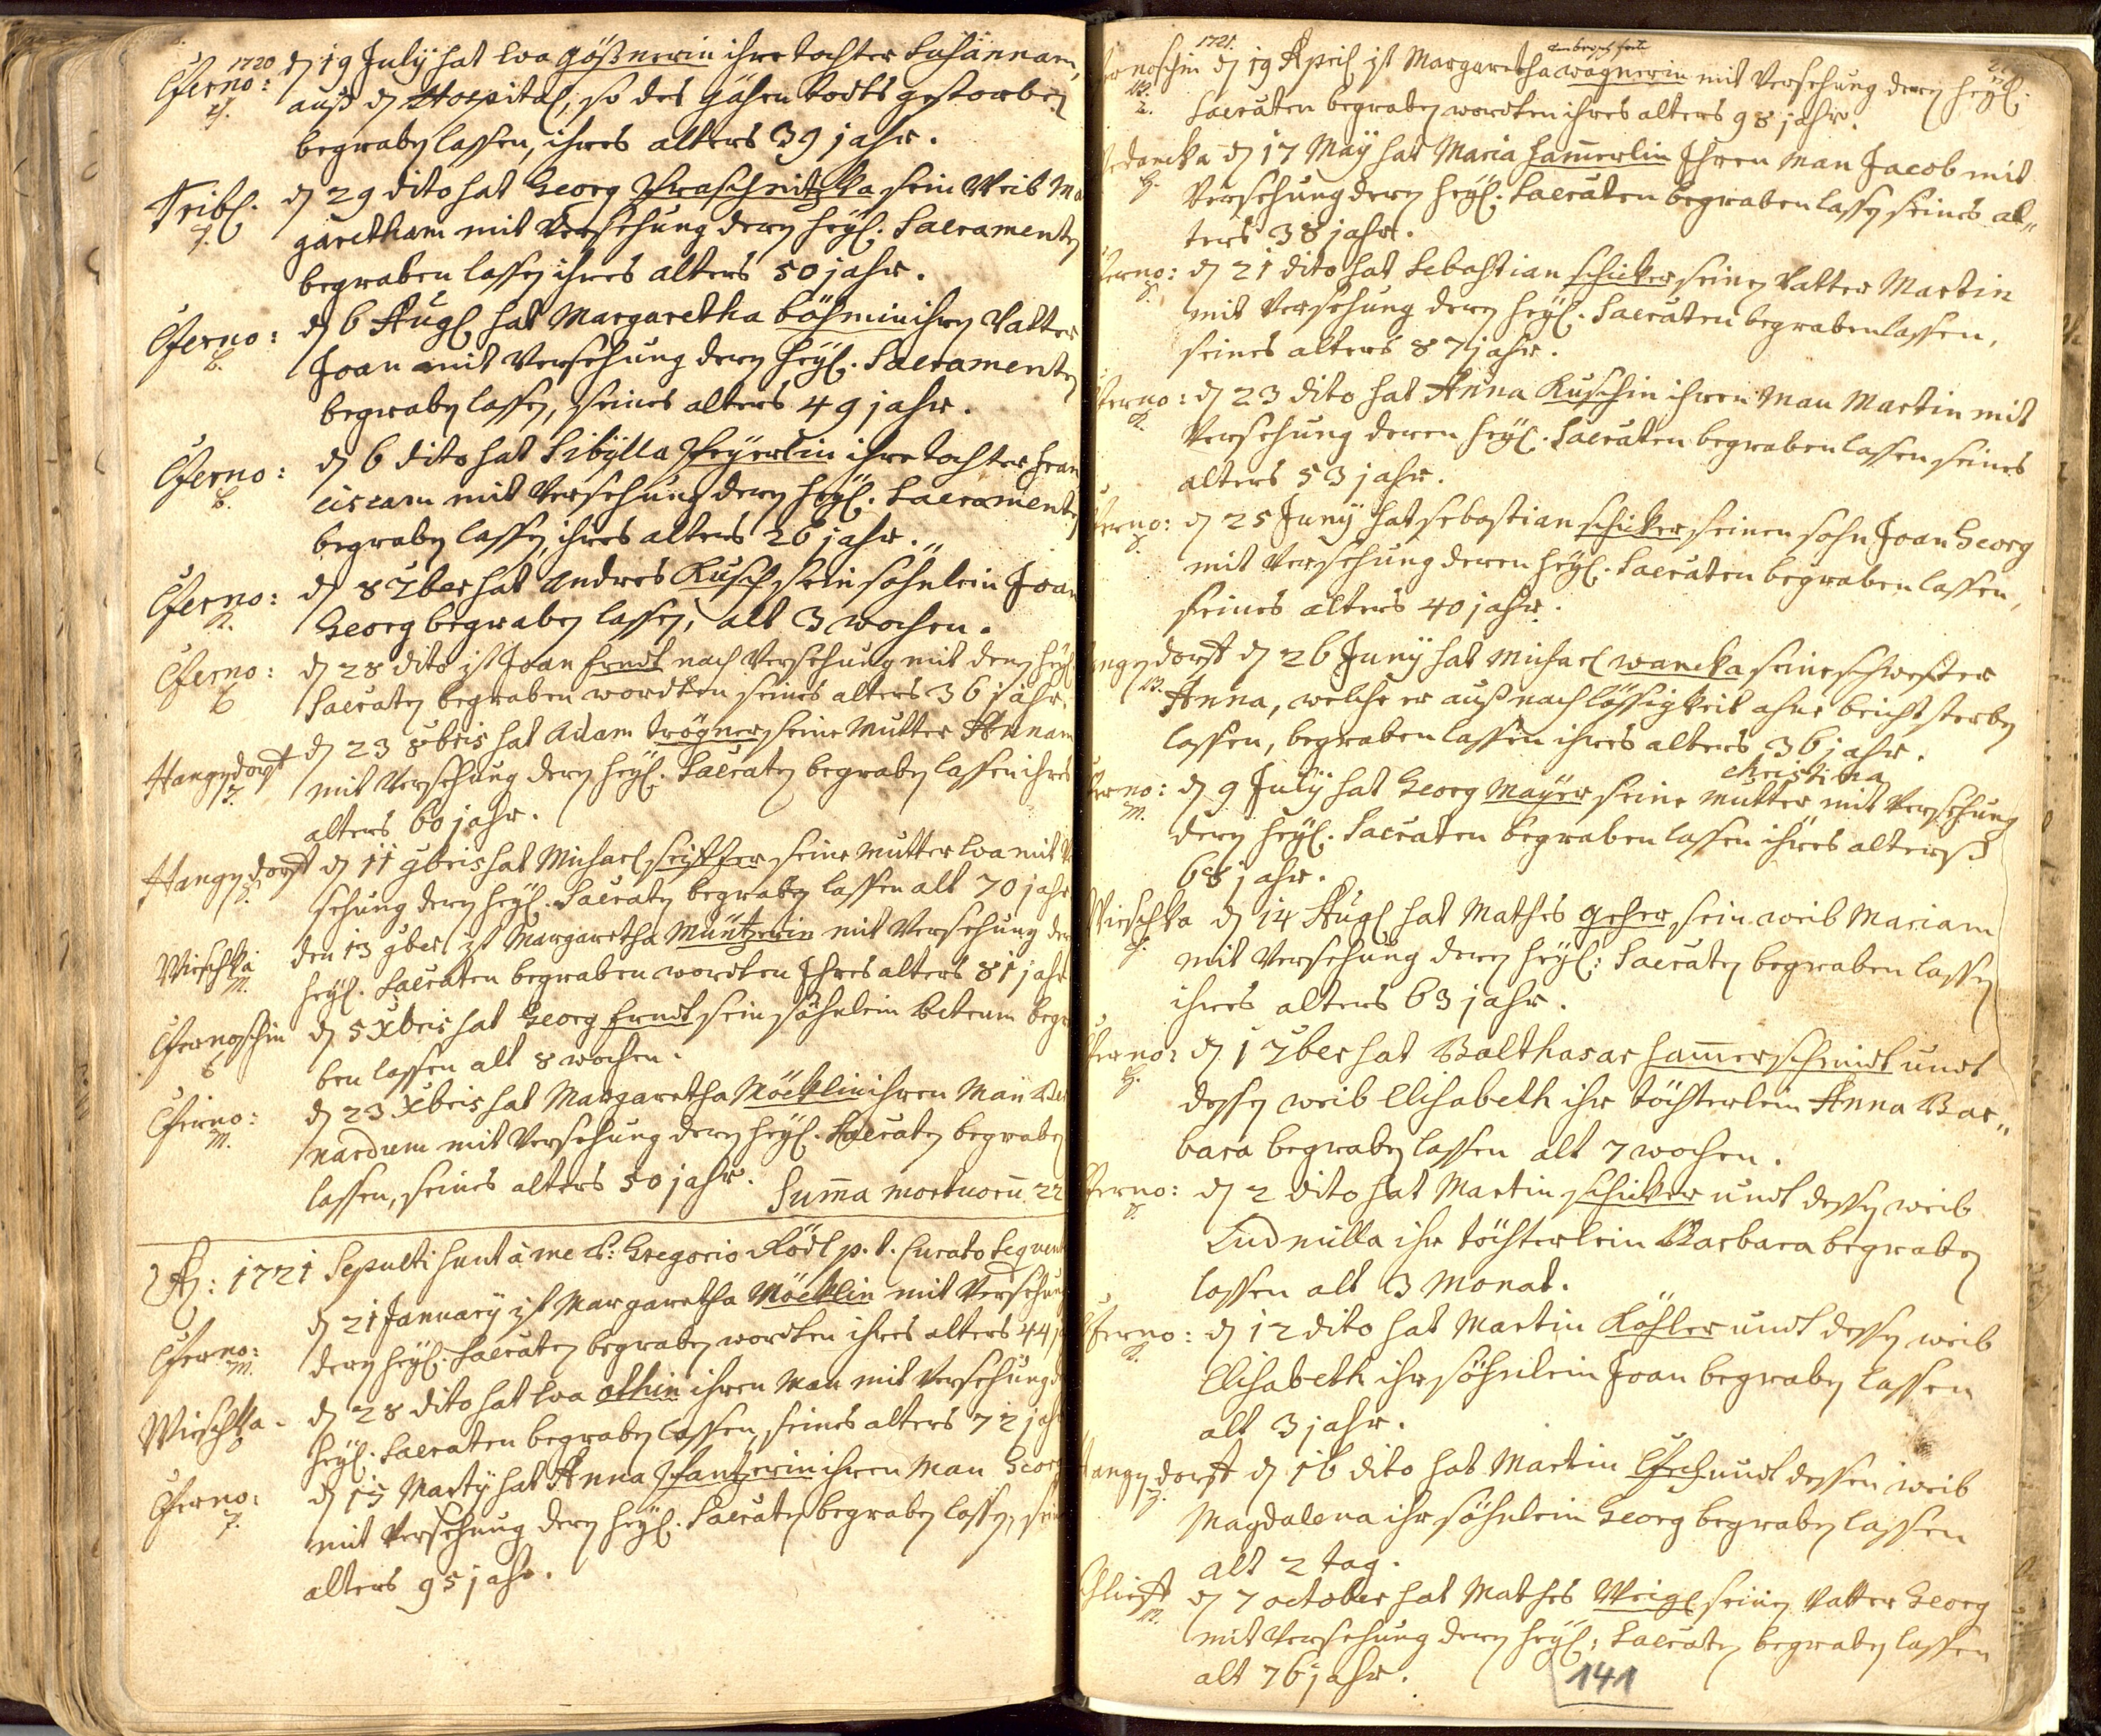 1720
Czerno: dn 19 July hat Eva Gößnerin ihre tochter Susannam,
G. auß dn Hospital, so des gähen todts gestorben
begraben lassen, ihres alters 39 jahr.
Tribl. dn 29 dito hat Georg sein Weib Mar
garetham mit Versehung deren heyl. Sacramenten
begraben lassen ihres alters 50 jahr.
Czerno: dn 6 Augl hat Margaretha Böhmin ihren Vatter
B. Joan mit Versehung deren heyl. Sacramenten
begraben lassen, seines alters 49 jahr.
Czerno: dn 6 dito hat Sibylla ihre tochter Fran
ciscam mit Versehung deren heyl. Sacramenten
begraben lassen, ihres alters 26 jahr.
Czerno: dn 8 7ber hat Andres Kusch sein söhnlein Joan
K. Georg begraben lassen, alt 3 wochen.
Czerno: dn 28 dito ist Joan Erndt nach Versehung mit denen heyl
E Sacraten begraben wordten seines alters 36 jahr.
Hangendorff dn 23 8bris hat Adam Trögner seine Mutter Annam
T. mit Versehung deren heyl. Sacraten begraben lassen ihres
alters 60 jahr.
Hangendorff dn 11 9bris hat Michael seine Mutter Eva mit Ve
S. sehung deren heyl. Sacraten begraben lassen alt 70 jahr
Wieschka den 13 9ber ist Margaretha Müntzerin mit Versehung der
M. heyl. Sacraten begraben wordten Ihres alters 81 jahr
Czernoschin dn 5 Xbris hat Georg Erndt sein söhnlein Petrum begra
E ben lassen alt 8 wochen.
Czerno: dn 23 Xbris hat Margaretha Möcklin ihren Man Ber
M. nardum mit Versehung deren heyl. Sacraten begraben
lassen, seines alters 50 jahr. Suma mortuorum 22
Ao: 1721 Sepulti sunt à me P: Gregorio Rödl p. t. Curato sequent
Czerno: dn 21 January ist Margaretha Möcklin mit Versehung
M. deren heyl. Sacraten begraben wordten ihres alters 44 j
Wieschka. dn 28 dito hat Eva Othin ihren Man mit Versehung d
O heyl. Sacraten begraben lassen, seines alters 72 jahr
Czerno: dn 15 Marty hat Anna ihren Man Georg
mit Versehung deren heyl. Sacraten begraben lassen, sein
alters 95 jahr.
1721.
rnoschin dn 19 April ist Margaretha Wagnerin mit Versehung deren heyl.
W. Sacraten begraben wordten ihres alters 98 jahr.
dn 17 May hat Maria Hamerlin Ihren Man Jacob mit
H. Versehung deren heyl. Sacraten begraben lassen seines al„
ters 38 jahr.
zerno: dn 21 dito hat Sebastian Schicker seinen Vatter Martin
S. mit Versehung deren heyl. Sacraten begraben lassen,
seines alters 87 jahr.
zerno: dn 23 dito hat Anna Kuschin ihren Man Martin mit
K. Versehung deren heyl. Sacraten begraben lassen seines
alters 53 jahr.
zerno: dn 25 Juny hat Sebastian Schicker seinen sohn Joan Georg
S. mit Versehung deren heyl. Sacraten begraben lassen,
seines alters 40 jahr.
angendorff dn 26 Juny hat Michael Wancka seine schwester
W. Anna, welche er auß nachlässigkeit ohne beicht sterben
lassen, begraben lassen ihres alters 36 jahr.
Christina
zerno: dn 9 July hat Georg Mayer seine Mutter mit Versehung
M. deren heyl. Sacraten begraben lassen ihres alterß
68 jahr.
Wieschka dn 14 Augl hat Mathes Geher sein weib Mariam
G. mit Versehung deren heyl: Sacraten begraben lassen
ihres alters 63 jahr.
zerno: dn 1 7ber hat Balthasar Hamerschmidt undt
H. dessen weib Elisabeth ihr töchterlein Anna Bar„
bara begraben lassen alt 7 wochen.
zerno: dn 2 dito hat Martin Schicker undt dessen weib
S. Ludmilla ihr töchterlein Barbara begraben
lassen alt 3 Monat.
zerno: dn 12 dito hat Martin Köhler undt dessen weib
K. Elisabeth ihr söhnlein Joan begraben lassen
alt 3 jahr.
angendorff dn 16 dito hat Martin undt dessen weib
Magdalena ihr söhnlein Georg begraben lassen
alt 2 tag.
dn 7 october hat Mathes Weigl seinen Vatter Georg
W. mit Versehung deren heyl: Sacraten begraben lassen
alt 76 jahr.
141